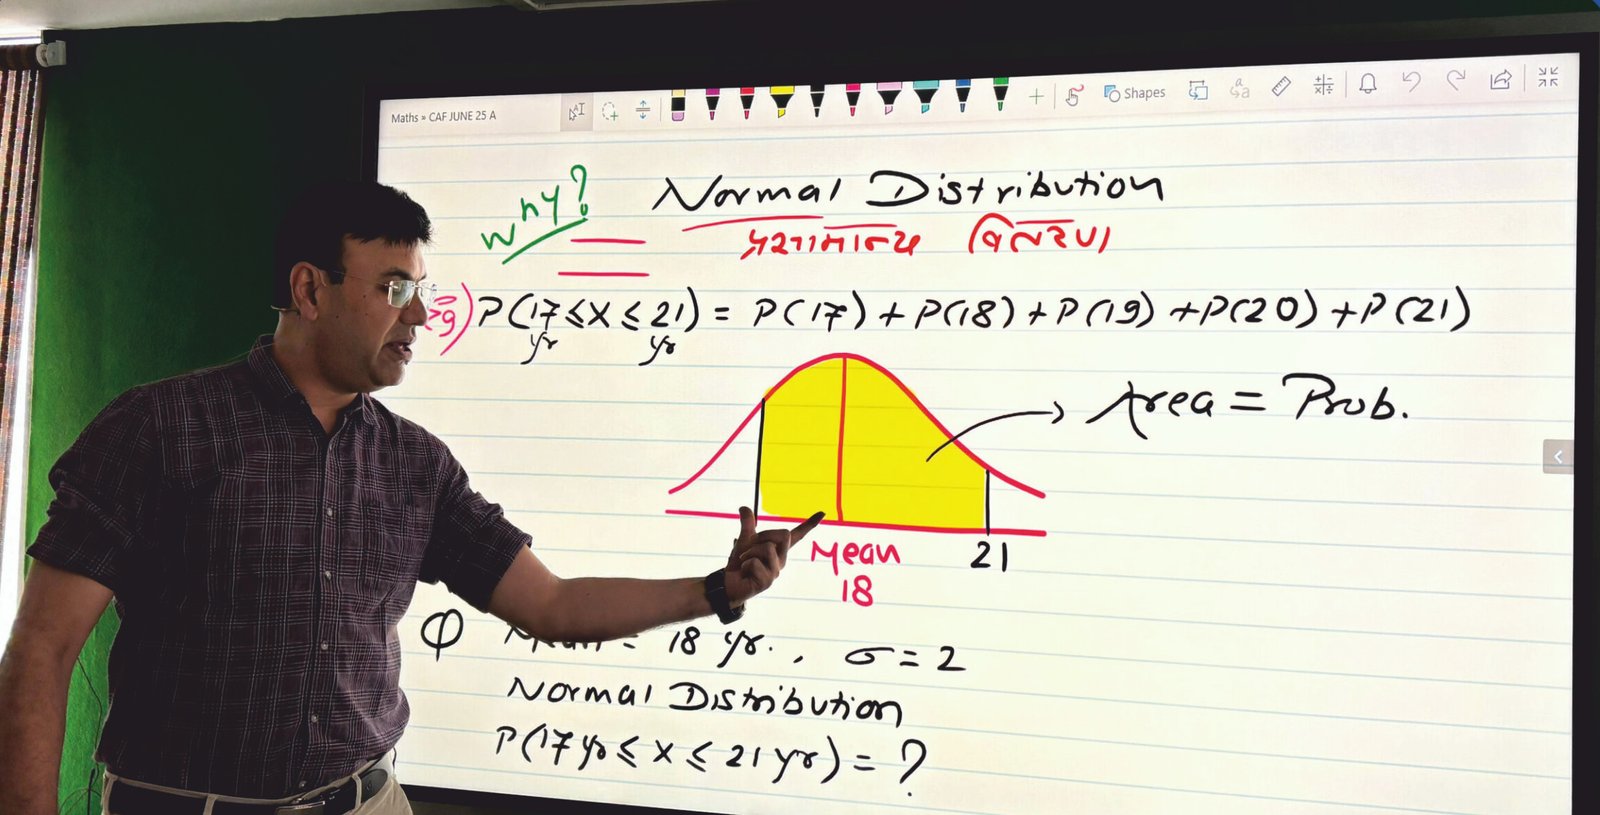 Maths » CAF JUNE 25 A
Shapes
Why?
Normal Distribution
प्रसामान्य वितरण
eg) P(17 ≤ x ≤ 21) = P(17) + P(18) + P(19) + P(20) + P(21)
yr yr
Area = Prob.
Mean 21
18
Q Mean = 18 yr. , σ = 2
Normal Distribution
P(17 yr ≤ x ≤ 21 yr) = ?